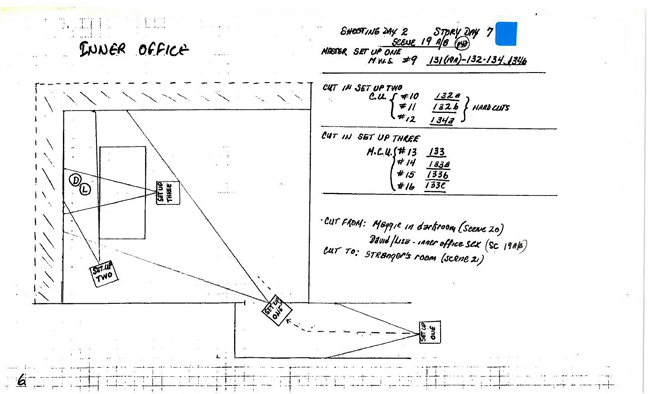 INNER OFFICE
SHOOTING DAY 2 STORY DAY 7
SCENE 19 A/B
MASTER SET UP ONE
M.W.S. #9 131(19A)-132-134, 134b
CUT IN SET UP TWO
C.U. { #10 132a
#11 132b } HARD CUTS
#12 134a
CUT IN SET UP THREE
M.C.U. { #13 133
#14 133a
#15 133b
#16 133c
CUT FROM: Maggie in darkroom (Scene 20)
David/Lisa - inner office sex (Sc 19A/B)
CUT TO: Stranger's room (Scene 21)
D L
SET UP THREE
SET UP TWO
SET UP ONE
SET UP ONE
6